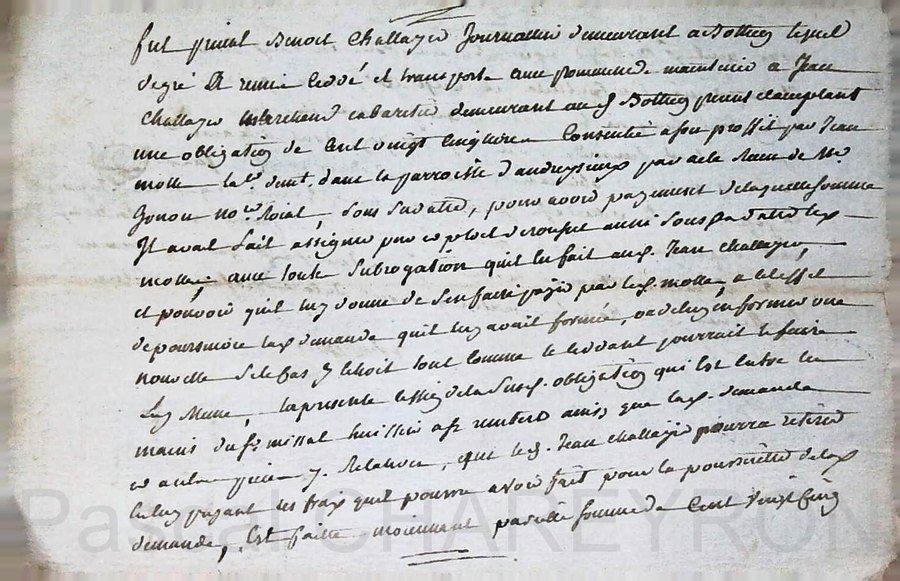 fut présent Benoit Challayer Journallier demeurant a Bothéon lequel
de gré a remis ceddé et transporté avec promesse de maintenir a Jean
Challayer marchand cabaretier demeurant aud Bothéon présent et acceptant
une obligation de Cent vingt Cinq livres Consentie a son proffit par Jean
motte lab.r dem.t dans la parroisse d'andrezieux par acte Reçu de M.e
Gonon no.re Roial, sous sa datte, pour avoir payement de laquelle somme
Il avait fait assigner par exploit de aussi sous sa datte led
motte, avec toute Subrogation qu'il en fait aud. Jean Challayer,
et pouvoir qu'il luy donne de s'en faire payer par led. motte, a l'effet
de poursuivre lad demande qu'il luy avait formée, ou de luy en former une
nouvelle si le cas y echoit tout Comme le ceddant pourrait le faire
Luy meme, la presente cession de la susd. obligation qui est entre les
mains du s.r missal huissier a s.t rembert ainsi que lad. demande
et autres pieces y Relatives, que led. Jean challayer pourra retirer
en luy payant les frais quil pourra avoir fait pour la poursuitte de lad
demande, Est faitte moiennant pareille somme de Cent vingt Cinq
Pascal CHAREYRON